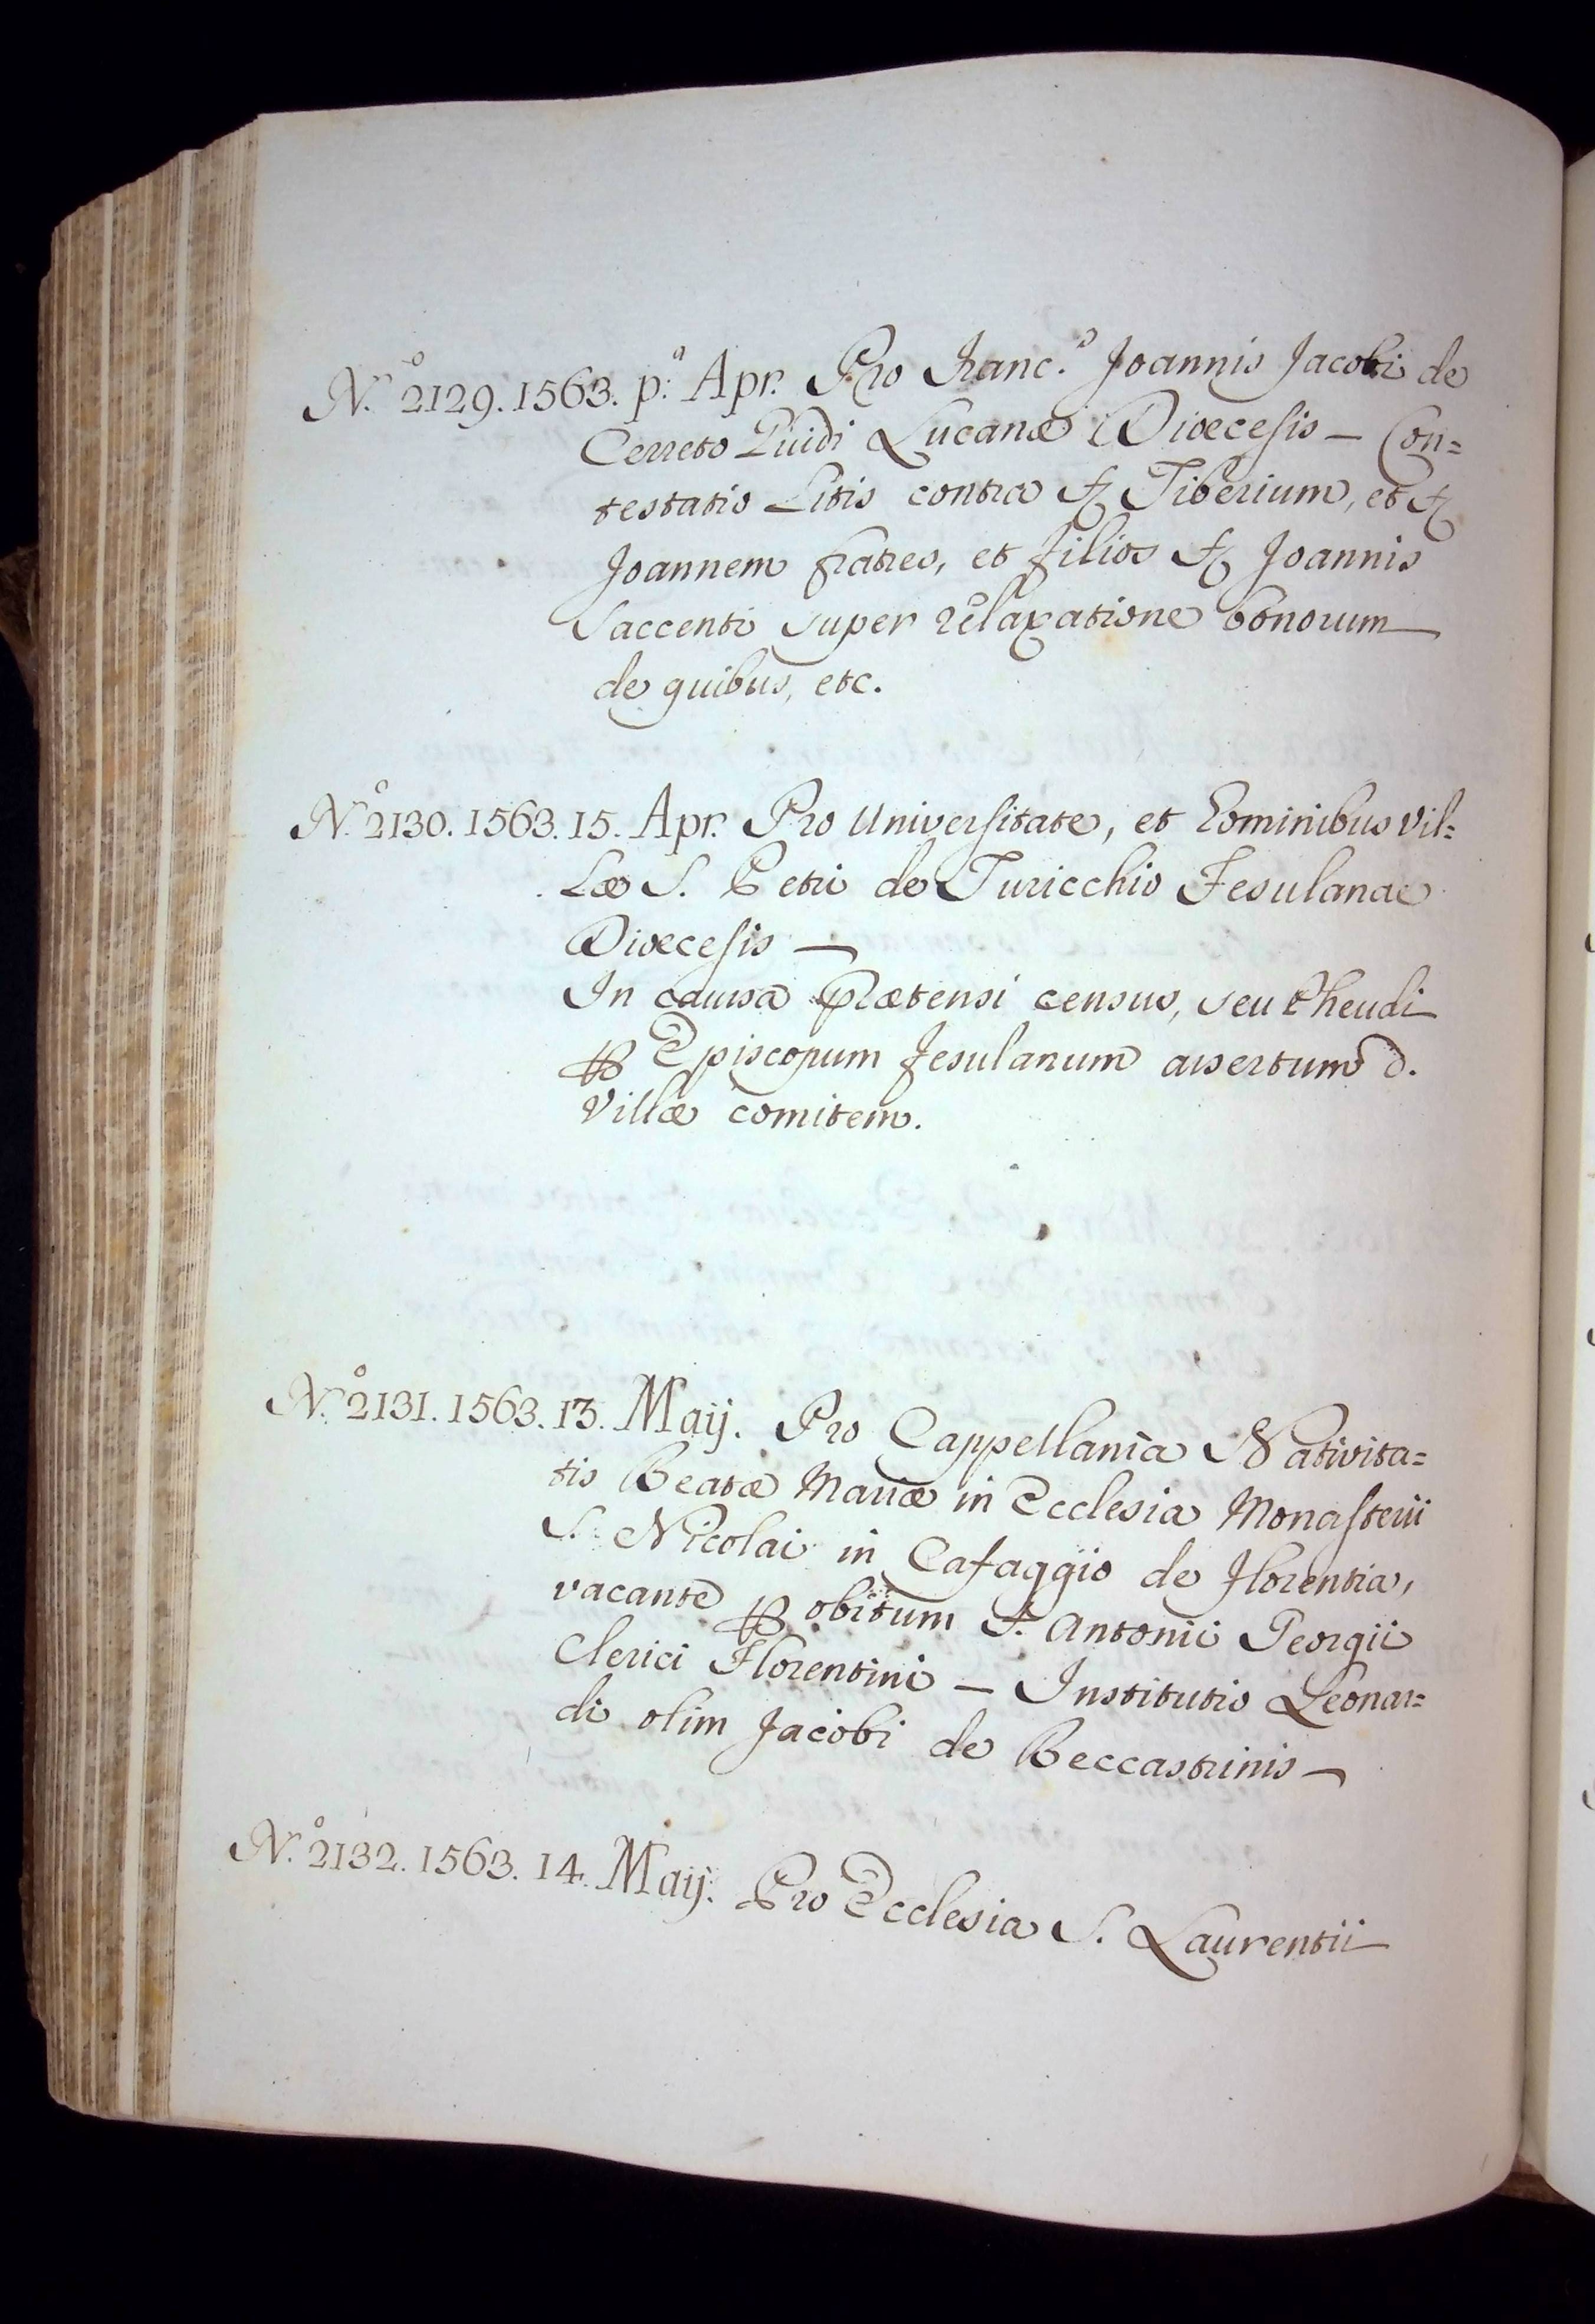 N.º 2129. 1563. p.ª Apr. Pro Franc.º Joannis Jacobi de
Cerreto Guidi Lucanæ Diœcesis — Con=
testatio Litis contra S. Tiberium, et S.
Joannem fratres, et filios S. Joannis
Saccenti super relaxatione bonorum
de quibus, etc.
N.º 2130. 1563. 15. Apr. Pro Universitate, et hominibus Vil=
læ S. Petri de Turicchio Fesulanae
Diœcesis —
In causa prætensi census, seu Pheudi
ꝑ Episcopum Fesulanum assertum d.
Villæ comitem.
N.º 2131. 1563. 13. Maij. Pro Cappellania Nativita=
tis Beatæ Mariæ in Ecclesia Monasterii
S. Nicolai in Cafaggio de Florentia,
vacante ꝑ obitum S. Antonii Georgii
Clerici Florentini — Institutio Leonar=
di olim Jacobi de Beccastrinis —
N.º 2132. 1563. 14. Maij. Pro Ecclesia S. Laurentii